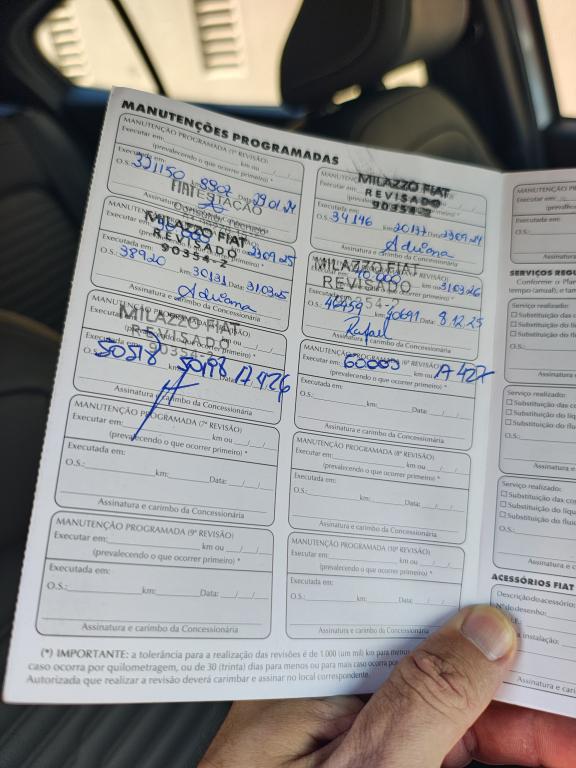 MANUTENÇÕES PROGRAMADAS
MANUTENÇÃO PROGRAMADA (1ª REVISÃO)
Executar em: km ou
(prevalecendo o que ocorrer primeiro) *
O.S.: 321150 8802 Data: 29.01.24
FIAT ESTAÇÃO
Assinatura
MILAZZO FIAT
REVISADO
90354-2
O.S.: 34146 km: 20137 Data: 23.09.24
Adriana
Assinatura e carimbo da Concessionária
MILAZZO FIAT
REVISADO
90354-2
23.09.25
Executada em:
O.S.: 38920 km: 30131 Data: 31.03.25
Adriana
Assinatura e carimbo da Concessionária
MILAZZO FIAT
REVISADO
90354-2
40.000 31.03.26
O.S.: 46459 km: 40691 Data: 8.12.25
Rafael
Assinatura e carimbo da Concessionária
MILAZZO FIAT
REVISADO
90354-2
50518 50198 17.4.26
Assinatura e carimbo da Concessionária
MANUTENÇÃO PROGRAMADA (6ª REVISÃO)
Executar em: 60000 km ou 17.4.27
(prevalecendo o que ocorrer primeiro) *
Executada em:
O.S.: km: Data:
Assinatura e carimbo da Concessionária
MANUTENÇÃO PROGRAMADA (7ª REVISÃO)
Executar em: km ou
(prevalecendo o que ocorrer primeiro) *
Executada em:
O.S.: km: Data:
Assinatura e carimbo da Concessionária
MANUTENÇÃO PROGRAMADA (8ª REVISÃO)
Executar em: km ou
(prevalecendo o que ocorrer primeiro) *
Executada em:
O.S.: km: Data:
Assinatura e carimbo da Concessionária
MANUTENÇÃO PROGRAMADA (9ª REVISÃO)
Executar em: km ou
(prevalecendo o que ocorrer primeiro) *
Executada em:
O.S.: km: Data:
Assinatura e carimbo da Concessionária
MANUTENÇÃO PROGRAMADA (10ª REVISÃO)
Executar em: km ou
(prevalecendo o que ocorrer primeiro) *
Executada em:
O.S.: km: Data:
Assinatura e carimbo da Concessionária
(*) IMPORTANTE: a tolerância para a realização das revisões é de 1.000 (um mil) km para menos
caso ocorra por quilometragem, ou de 30 (trinta) dias para menos ou para mais caso ocorra por
Autorizada que realizar a revisão deverá carimbar e assinar no local correspondente.
Executada em:
O.S.:
SERVIÇOS REGU
Conforme o Plan
tempo (anual), e tam
Serviço realizado:
Substituição das co
Substituição do líq
Substituição do flu
O.S.:
Serviço realizado:
Substituição das co
Substituição do líqu
Substituição do flu
O.S.:
Serviço realizado:
Substituição das co
Substituição do líqu
Substituição do fluid
O.S.:
ACESSÓRIOS FIAT
Descrição do acessório:
Nº do desenho:
instalação: